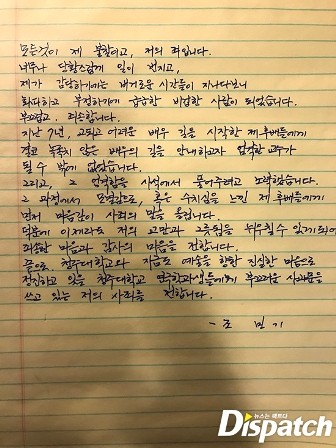 모든것이 제 불찰이고, 저의 죄입니다.
너무나 당황스럽게 일이 번지고,
제가 감당하기에는 버거운 시간들이 지나다보니
회피하고 부정하기에 급급한 비겁한 사람이 되었습니다.
부끄럽고, 죄송합니다.
지난 7년, 고되고 어려운 배우 길을 시작한 제 후배들에게
결코 녹록치 않은 배우의 길을 안내하고자 엄격한 교수가
될 수 밖에 없었습니다.
그리고, 그 엄격함을 사석에서 풀어주려고 노력했습니다.
그 과정에서 모멸감으로, 혹은 수치심을 느낀 제 후배들에게
먼저 마음깊이 사죄의 말을 올립니다.
덕분에 이제라도 저의 교만과 그릇됨을 뉘우칠 수 있게되어
죄송한 마음과 감사의 마음을 전합니다.
끝으로, 청주대학교와 지금도 예술을 향한 진실한 마음으로
정진하고 있을 청주대학교 연극학과생들에게 부끄러운 사과문을
쓰고 있는 저의 사죄를 전합니다.
- 조 민 기
뉴스는 팩트다
Dispatch